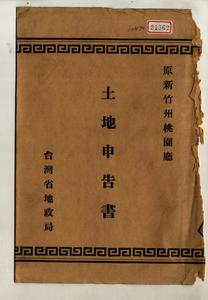 21362
原新竹州桃園廳
土地申告書
台灣省地政局